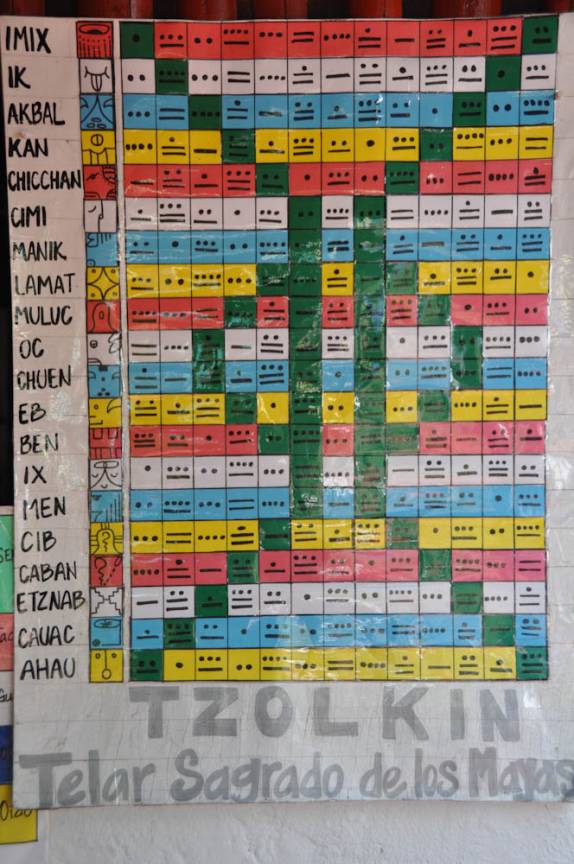 IMIX
IK
AKBAL
KAN
CHICCHAN
CIMI
MANIK
LAMAT
MULUC
OC
CHUEN
EB
BEN
IX
MEN
CIB
CABAN
ETZNAB
CAUAC
AHAU
TZOLKIN
Telar Sagrado de los Mayas